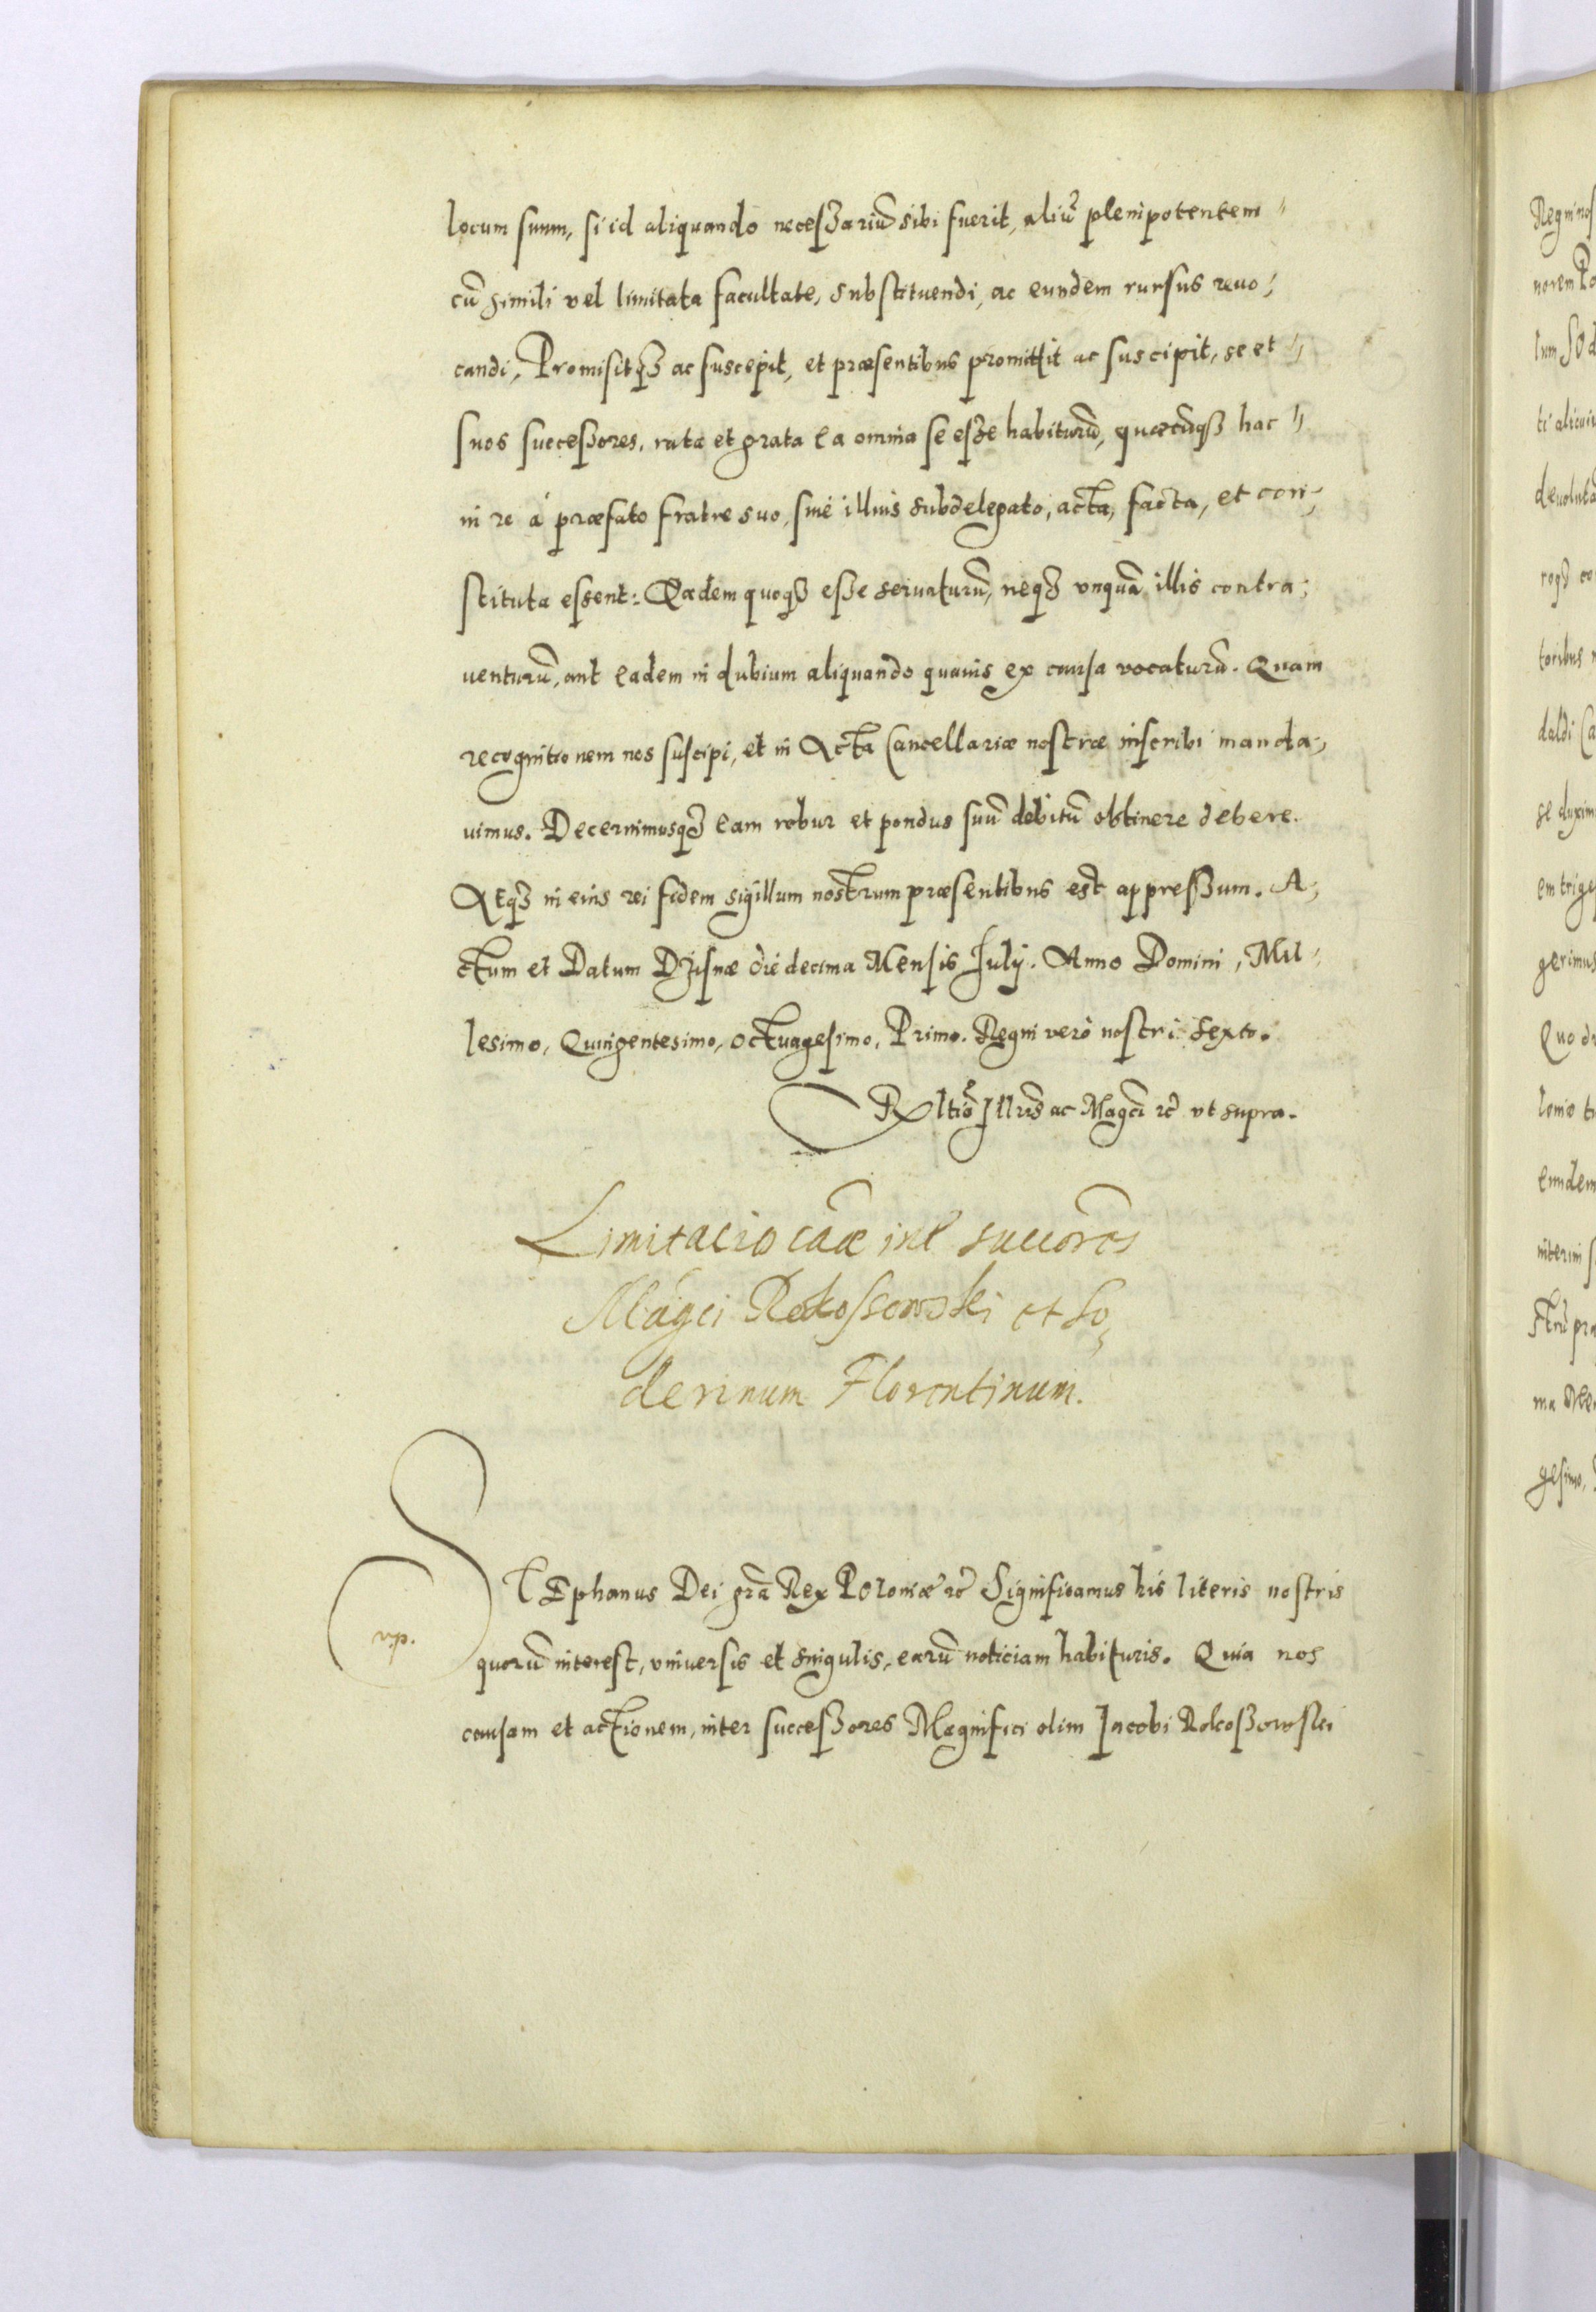 locum suum, si id aliquando necessariũ sibi fuerit, aliũ plenipotentem
cũ simili vel limitata facultate, substituendi, ac eundem rursus reuo,
candi, Promisitqȝ ac suscepit, et præsentibus promittit ac suscipit, se et
suos successores, rata et grata ea omnia se esse habiturũ, quæcũqȝ hac
in re à præfato fratre suo, siue illius subdelegato, acta, facta, et con,
stituta essent: Eadem quoqȝ esse seruaturũ, neqȝ vnquã illis contra,
uenturũ, aut eadem in dubium aliquando quauis ex causa vocaturũ. Quam
recognitionem nos suscipi, et in Acta Cancellariæ nostræ inscribi manda,
uimus. Decernimusqȝ eam robur et pondus suũ debitũ obtinere debere.
Atqȝ in eius rei fidem sigillum nostrum præsentibus est appressum. A,
ctum et Datum Dzisnæ die decima Mensis Iulij. Anno Domini, Mil,
lesimo, Quingentesimo, octuagesimo, Primo. Regni verò nostri sexto.
Rltiõ Illris ac Magci ꝛc̃ vt supra.
Limitacio cãæ int succores
Magci Rokossowski et So,
derinum Florentinum.
STEphanus Dei grã Rex Poloniæ ꝛc̃ Significamus his literis nostris
quorũ interest, vniuersis et singulis, earũ noticiam habituris. Quia nos
causam et actionem, inter successores Magnifici olim Jacobi Rokossowski
Regni nos
lum SOd
ti alicui
deuoluta
toribus
daldi Ca
se duxim
em trige
gerimus
eundem
interim
gesimo,